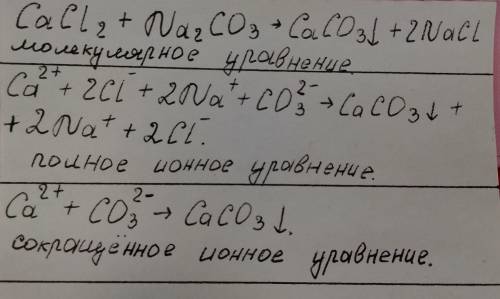 CaCl₂ + Na₂CO₃ → CaCO₃↓ + 2NaCl
молекулярное уравнение.
Ca²⁺ + 2Cl⁻ + 2Na⁺ + CO₃²⁻ → CaCO₃↓ +
+ 2Na⁺ + 2Cl⁻.
полное ионное уравнение.
Ca²⁺ + CO₃²⁻ → CaCO₃↓.
сокращённое ионное уравнение.